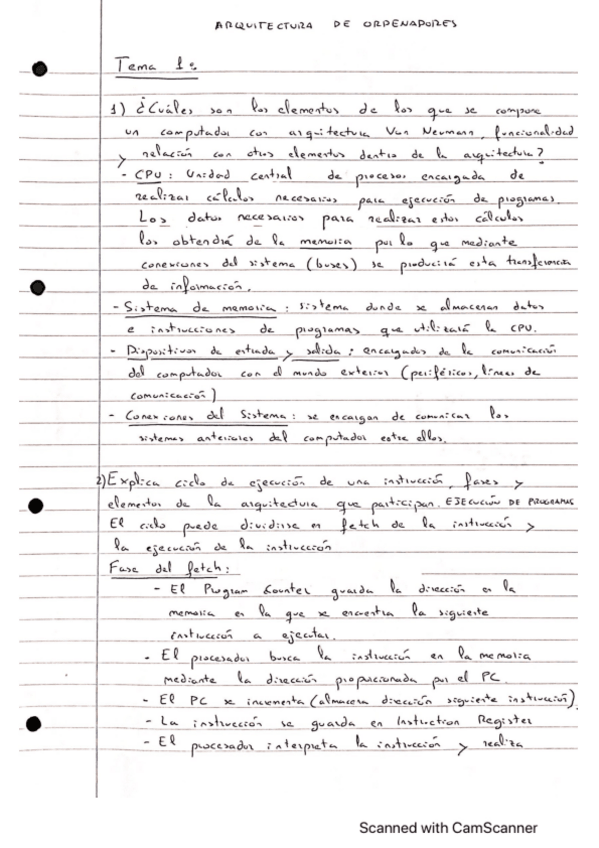 ARQUITECTURA DE ORDENADORES
Tema 1:
1) ¿Cuáles son los elementos de los que se compone
un computador con arquitectura Von Neumann, funcionalidad
y relación con otros elementos dentro de la arquitectura?
- CPU: Unidad central de procesor encargada de
realizar cálculos necesarios para ejecución de programas.
Los datos necesarios para realizar estos cálculos
los obtendrá de la memoria por lo que mediante
conexiones del sistema (buses) se producirá esta transferencia
de información.
- Sistema de memoria: sistema donde se almacenan datos
e instrucciones de programas que utilizará la CPU.
- Dispositivos de entrada y salida: encargados de la comunicación
del computador con el mundo exterior (periféricos, líneas de
comunicación)
- Conexiones del Sistema: se encargan de comunicar los
sistemas anteriores del computador entre ellos.
2) Explica ciclo de ejecución de una instrucción, fases y
elementos de la arquitectura que participan. EJECUCIÓN DE PROGRAMAS
El ciclo puede dividirse en fetch de la instrucción y
la ejecución de la instrucción
Fase del fetch:
- El Program Counter guarda la dirección en la
memoria en la que se encuentra la siguiente
instrucción a ejecutar.
- El procesador busca la instrucción en la memoria
mediante la dirección proporcionada por el PC.
- El PC se incrementa (almacena dirección siguiente instrucción)
- La instrucción se guarda en Instruction Register
- El procesador interpreta la instrucción y realiza
Scanned with CamScanner